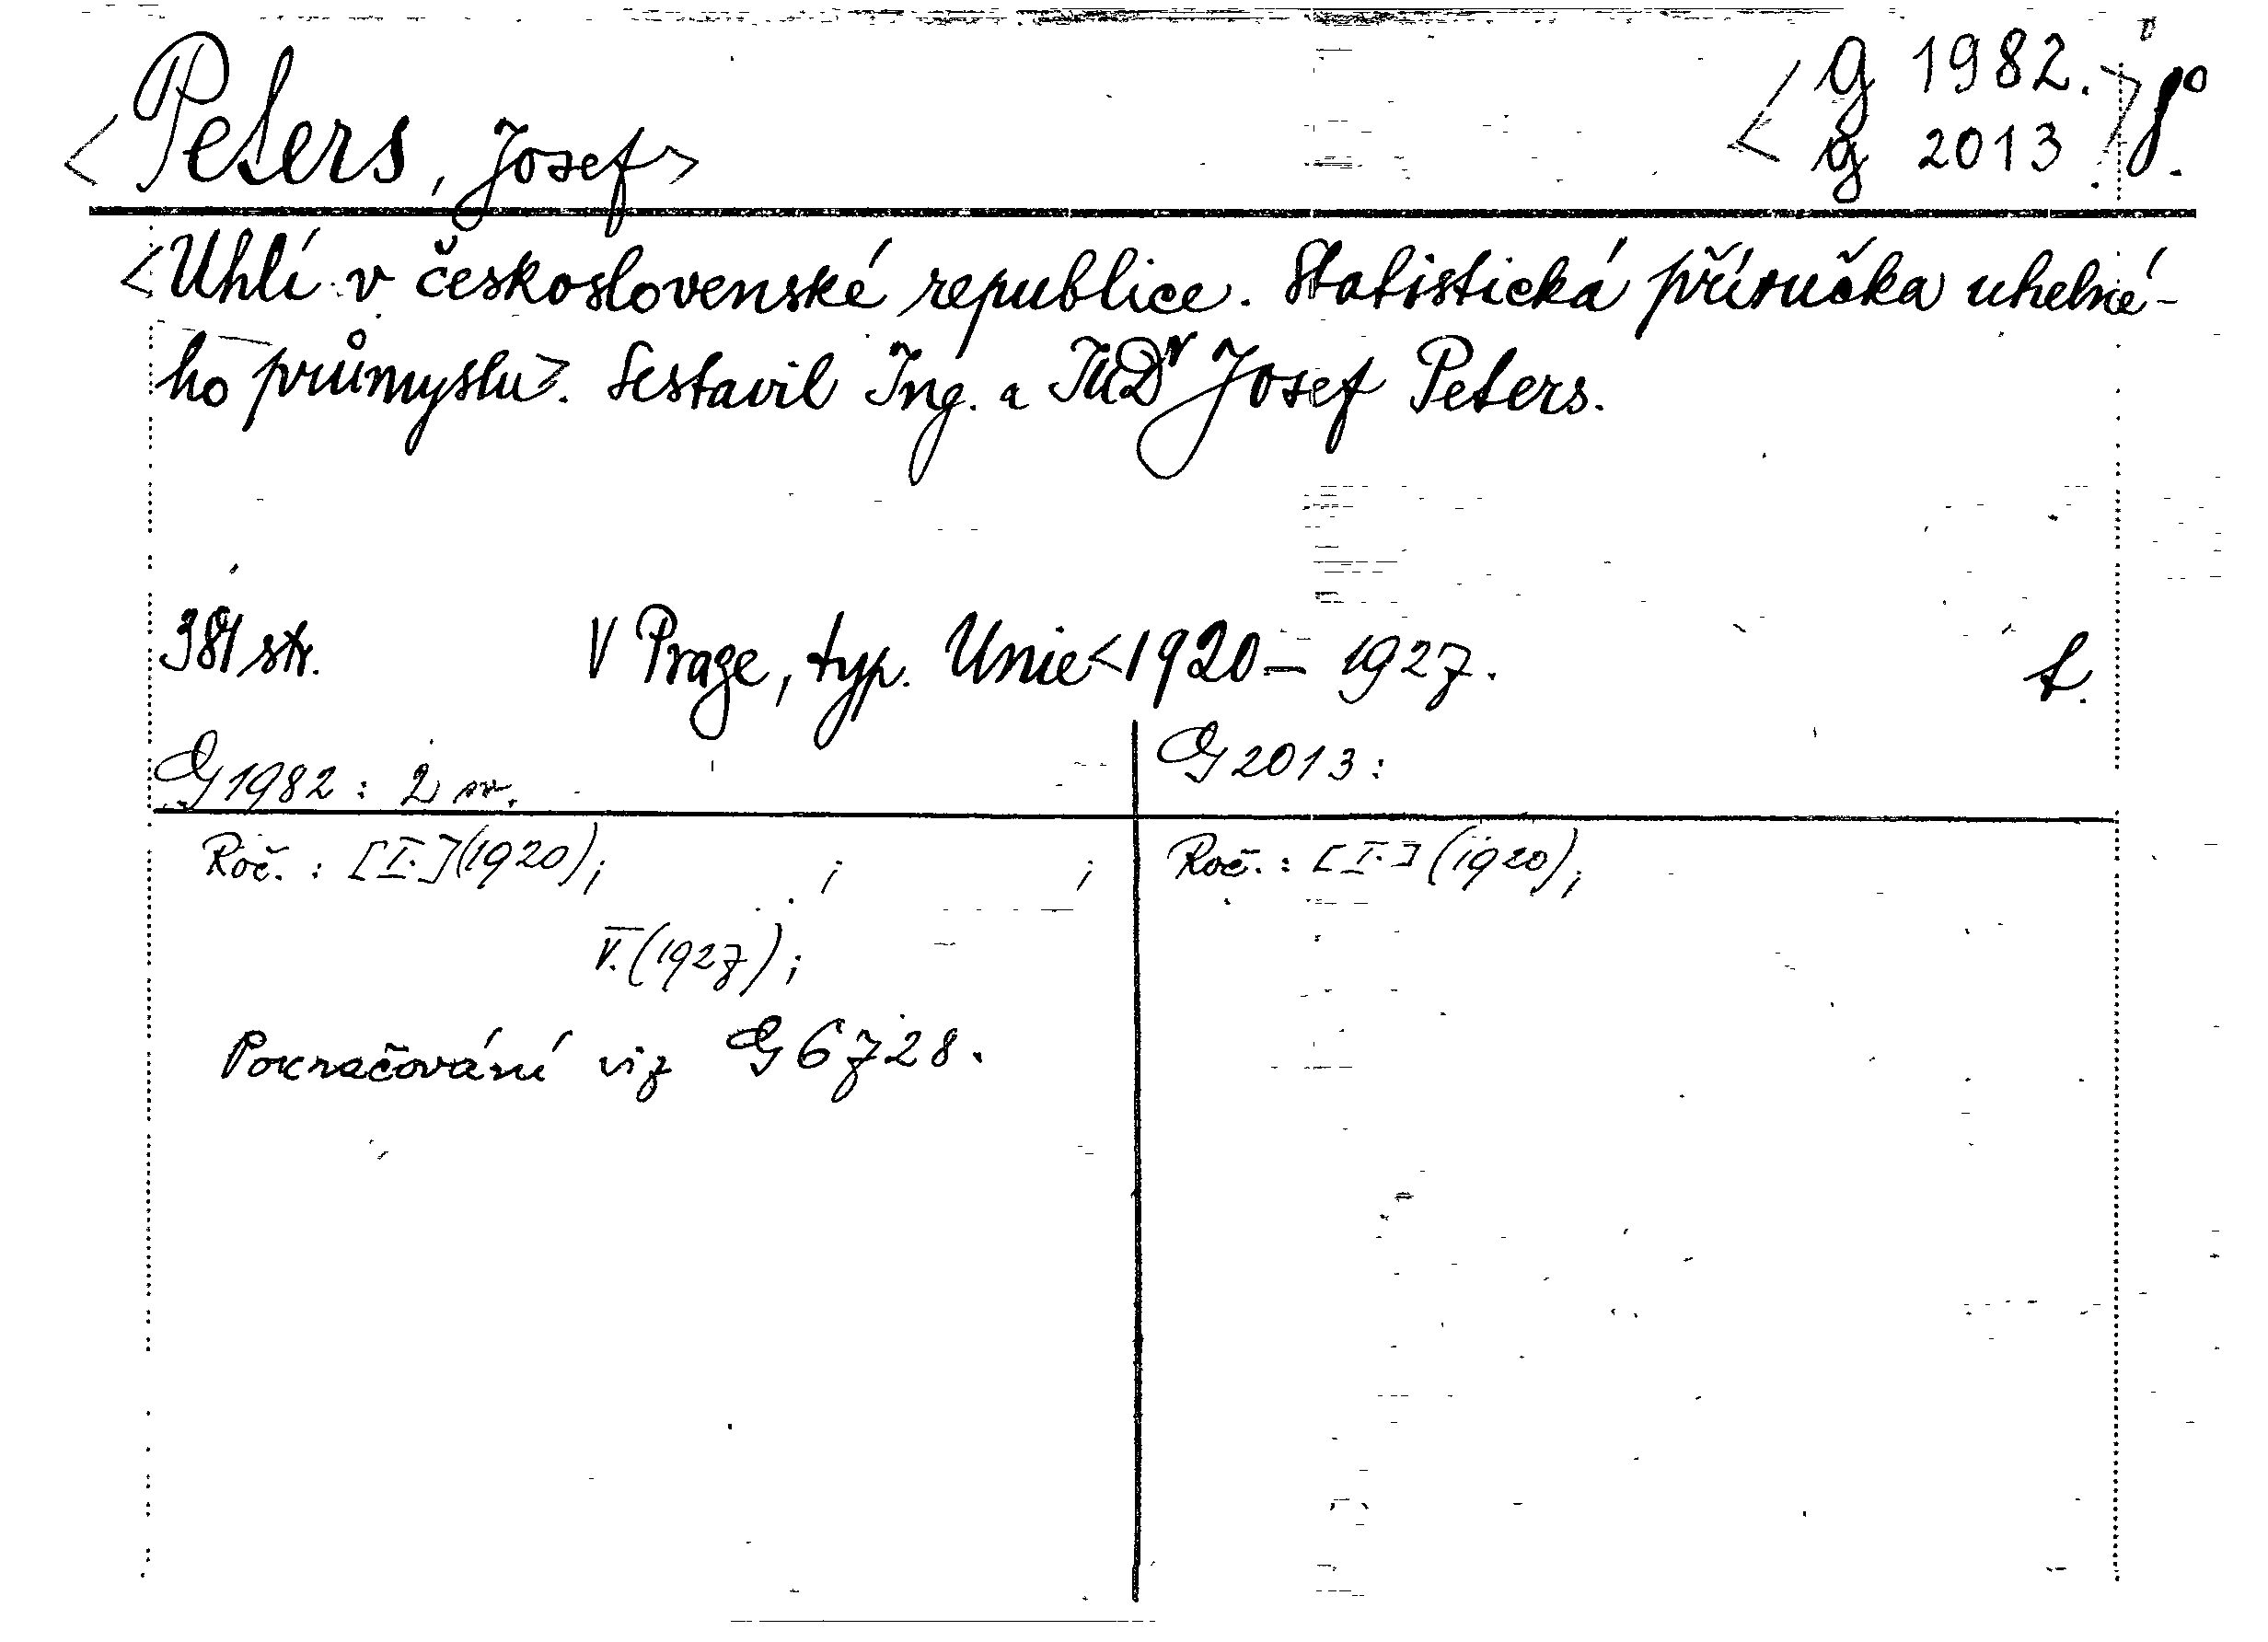 <Peters, Josef>
<G 1982.
G 2013.> 8°
<Uhlí v československé republice. Statistická příručka uhelné-
ho průmyslu>. Sestavil Ing. a JUDr Josef Peters.
V Praze, typ. Unie <1920 – 1927.
G 1982 : 2 sv.
G 2013 :
Roč. : [I.] (1920); ; ;
V. (1927);
Roč. : [I.] (1920);
Pokračování viz G 6728.